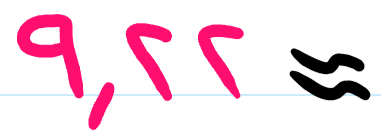 ≈ ٩,٢٢